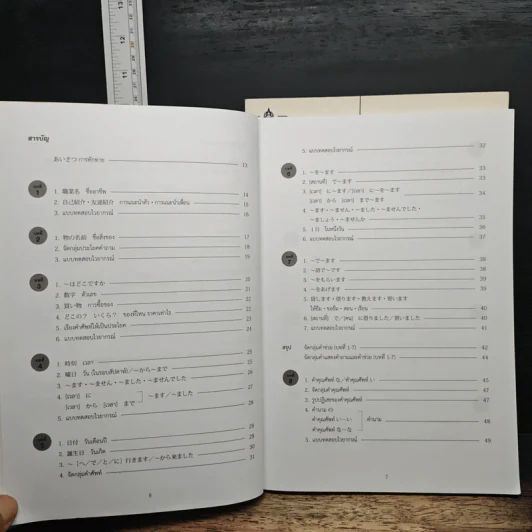 สารบัญ
あいさつ การทักทาย 13
บทที่ 1
1. 職業名 ชื่ออาชีพ 14
2. 自己紹介・友達紹介 การแนะนำตัว・การแนะนำเพื่อน 15
3. แบบทดสอบไวยากรณ์ 16
บทที่ 2
1. 物の名前 ชื่อสิ่งของ 17
2. จัดกลุ่มประโยคคำถาม 18
3. แบบทดสอบไวยากรณ์ 19
บทที่ 3
1. ~はどこですか 20
2. 数字 ตัวเลข 21
3. 買い物 การซื้อของ 22
4. どこの? いくら? ของที่ไหน ราคาเท่าไร
5. เรียงคำศัพท์ให้เป็นประโยค
6. แบบทดสอบไวยากรณ์ 24
บทที่ 4
1. 時刻 เวลา 25
2. 曜日 วัน (ในรอบสัปดาห์)/~から~まで 26
3. ~ます・~ません・~ました・~ませんでした
4. [เวลา] に
[เวลา] から [เวลา] まで ~ます/~ました 27
5. แบบทดสอบไวยากรณ์ 28
1. 日付 วันเดือนปี
2. 誕生日 วันเกิด 29
3. ~ [へ/で/と/に] 行きます/~から来ました 30
4. จัดกลุ่มคำศัพท์ 31
6
5. แบบทดสอบไวยากรณ์ 32
บทที่ 6
1. ~を~ます 33
2. [สถานที่] で~ます 33
3. [เวลา] に~ます/[เวลา] に~を~ます
[เวลา] から [เวลา] まで~ます 34
4. ~ます・~ません・~ました・~ませんでした・
~ましょう・~ませんか 35
5. 1日 ในหนึ่งวัน 36
6. แบบทดสอบไวยากรณ์ 37
บทที่ 7
1. ~で~ます 38
2. ~語で~です 38
3. ~をもらいます 39
4. ~をあげます 39
5. 貸します・借ります・教えます・習います
ให้ยืม・ขอยืม・สอน・เรียน 40
6. [สถานที่] で/[คน] に借りました/習いました 40
7. แบบทดสอบไวยากรณ์ 41
สรุป จัดกลุ่มคำช่วย (บทที่ 1-7) 42
จัดกลุ่มคำแสดงคำถามและคำช่วย (บทที่ 1-7) 44
บทที่ 8
1. คำคุณศัพท์ な/คำคุณศัพท์ い 45
2. จัดกลุ่มคำคุณศัพท์ 47
3. รูปปฏิเสธของคำคุณศัพท์ 47
4. คำนาม の
คำคุณศัพท์ い~い คำนาม 48
คำคุณศัพท์ な~な
5. แบบทดสอบไวยากรณ์ 49
7